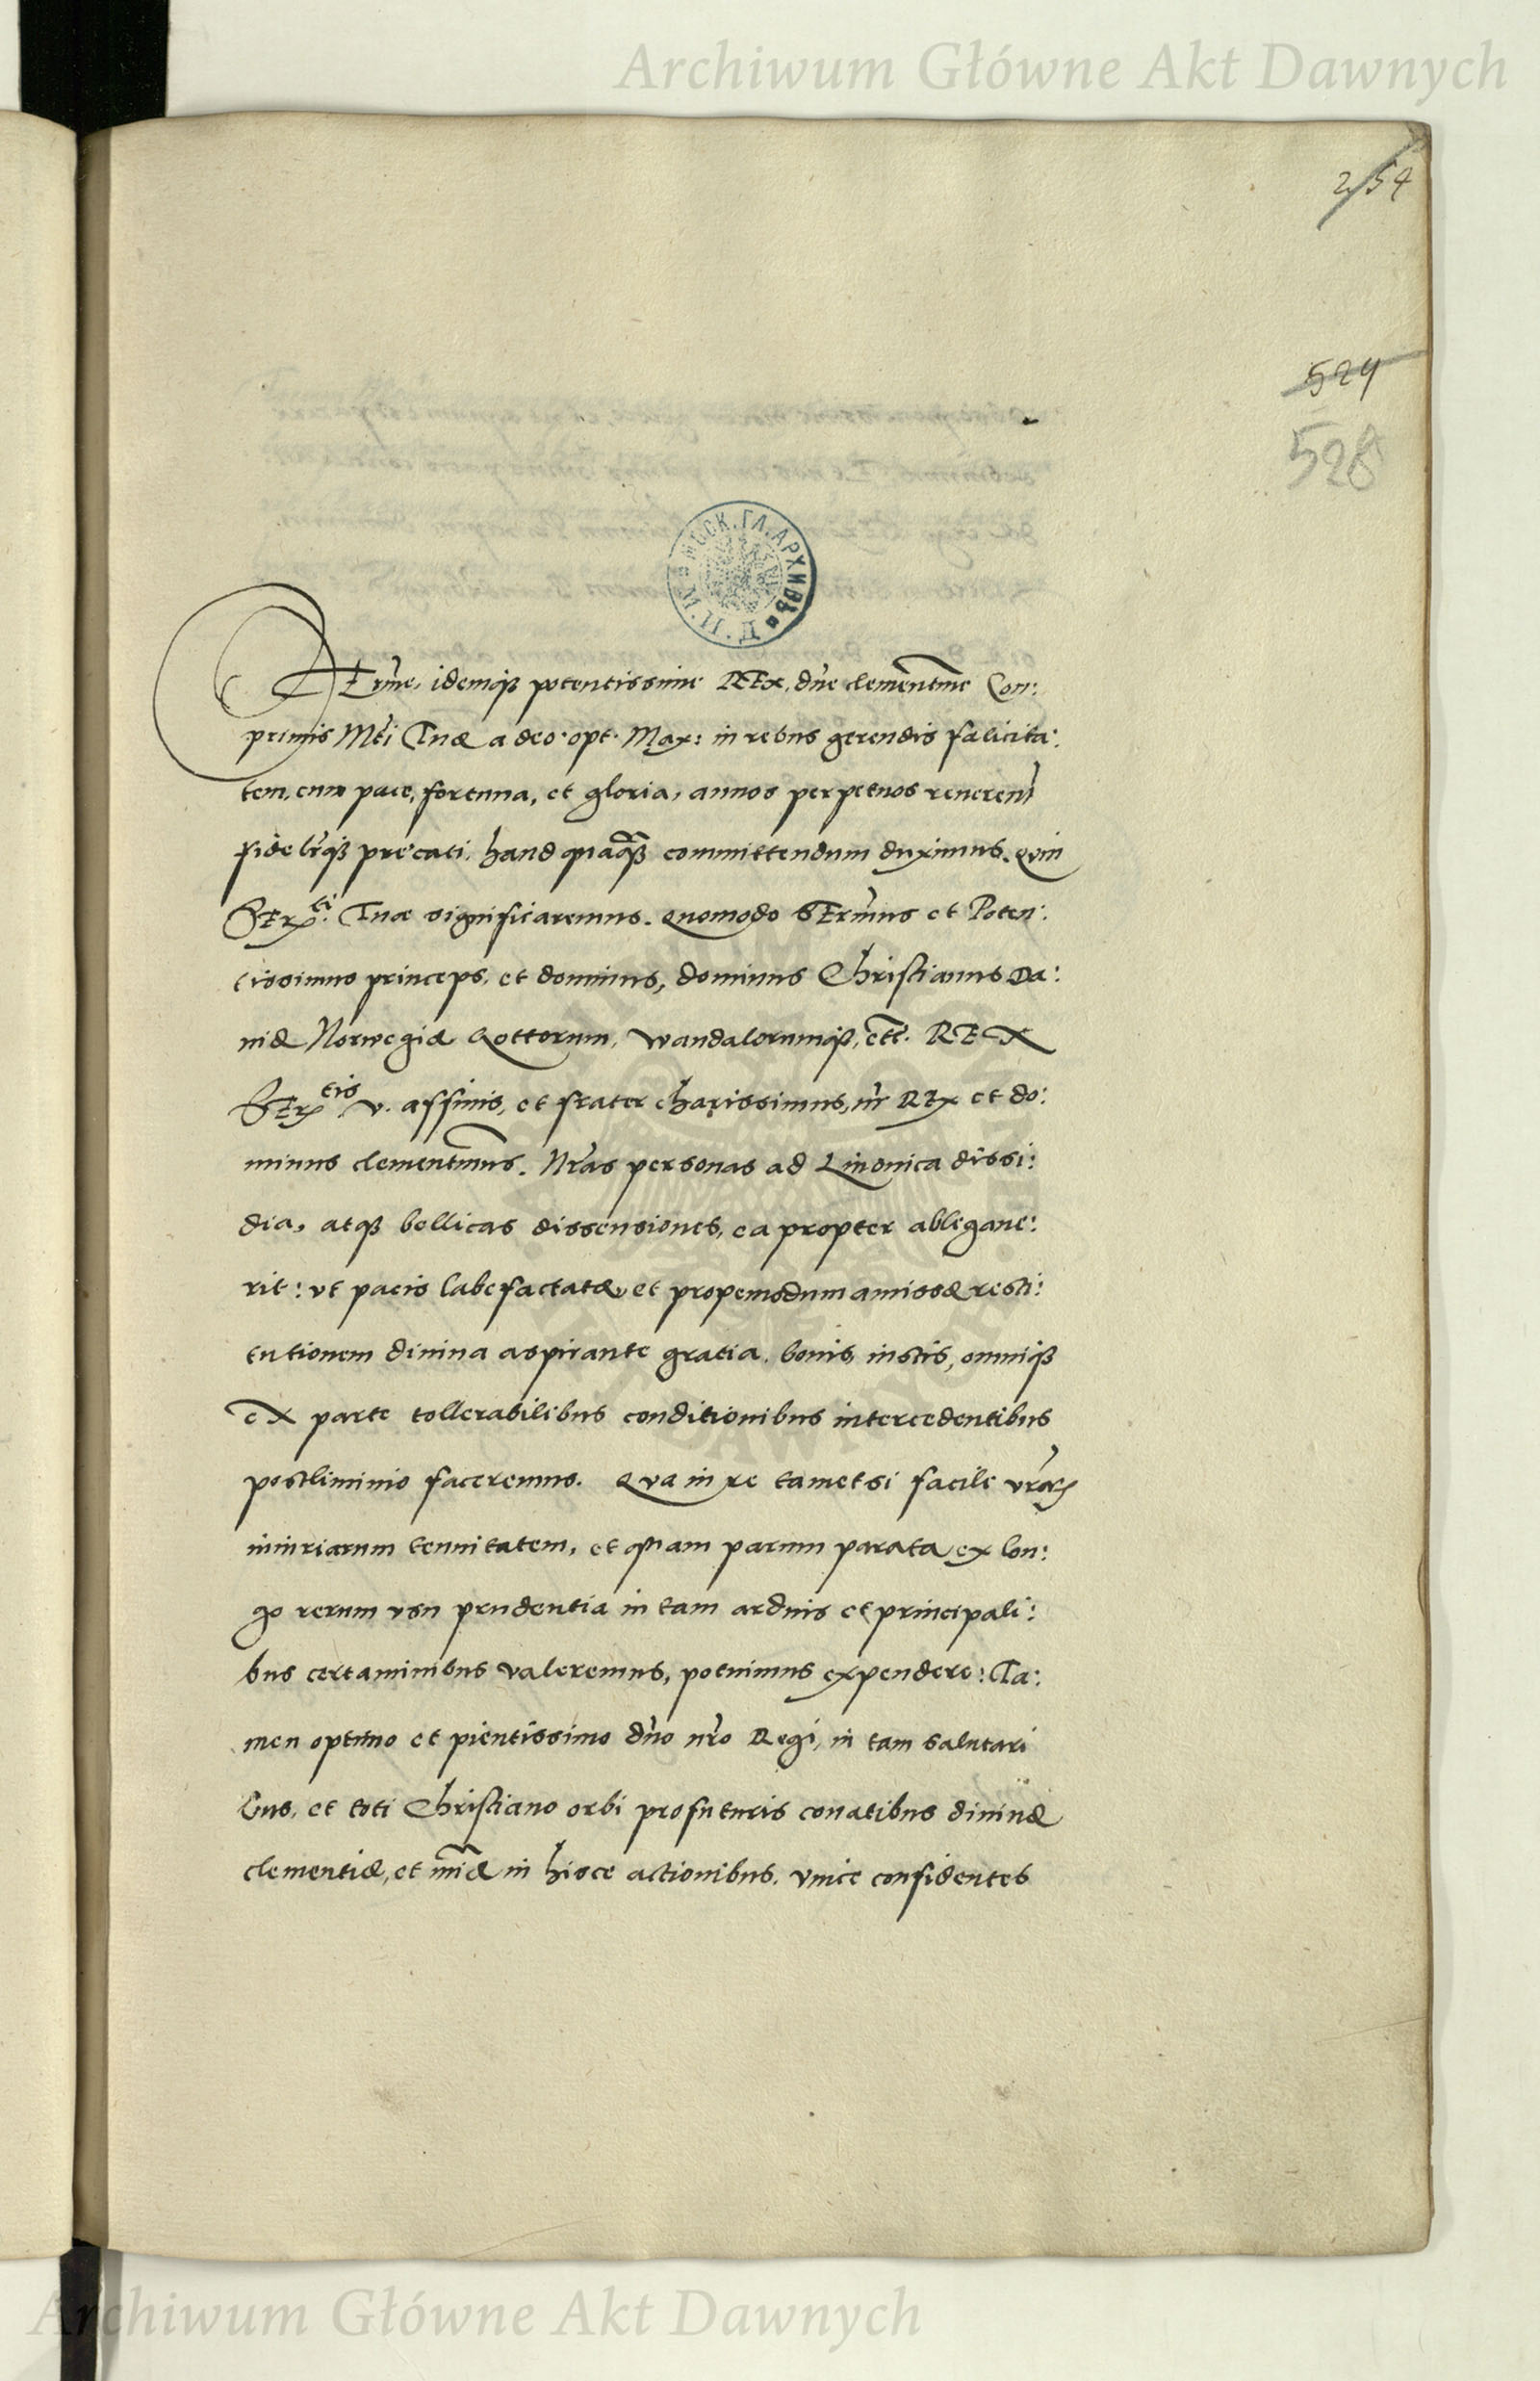 Archiwum Główne Akt Dawnych
254
524
528
МОСК. ГЛ. АРХИВЪ
SErme, idemqȝ potentissime REx, dne clementme Com:
primis Mti Tuæ a deo opt. Max: in rebus gerendis fælicita:
tem, cum pace, fortuna, et gloria, annos perpetuos reuerent
fidelrqȝ precati. haud quaqȝ committendum duximus. Quin
SErti. Tuæ significaremus. Quomodo SErmus et Poten:
tissimus princeps, et dominus, dominus Christianus Da:
niæ Norwegiæ Gottorum, Wandalorumqȝ, etc. REX
SErtis. V. affinis, et frater charissimus, nr REx et do:
minus clementmus. Nras personas ad Liuonica dissi:
dia, atqȝ bellicas dissensiones, ea propter ablegaue:
rit: vt pacis labefactatæ, et propemodum amissæ resti:
tutionem diuina aspirante gratia, bonis, iustis, omniqȝ
ex parte tollerabilibus conditionibus intercedentibus
postliminio faceremus. Qua in re tametsi facile
iniuriarum tenuitatem, et quam parum parata ex lon:
go rerum vsu prudentia in tam arduis et principali:
bus certaminibus valeremus, potuimus expendere: Ta:
men optimo et pientissimo dno nro Regi, in tam salutari
bus, et toti Christiano orbi profuturis conatibus diuinæ
clementiæ, et miæ in hisce actionibus, vnice confidentes
Archiwum Główne Akt Dawnych